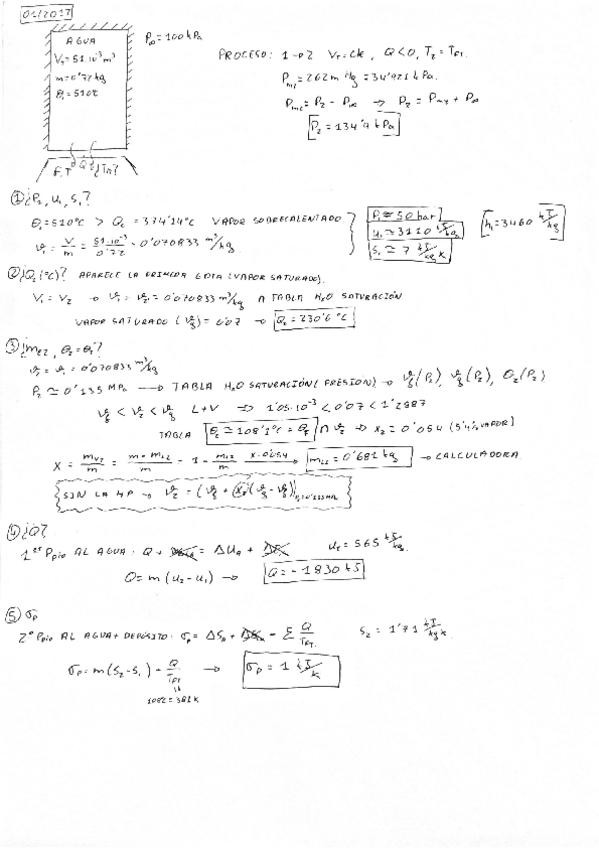 01/2017
AGUA
V₁ = 51·10⁻³ m³
m = 0'72 kg
θ₁ = 510℃
P∞ = 100 kPa
F.T Q ¿Tπ?
PROCESO: 1→2 V_T = cte, Q<0, T₂ = T_FT.
P_m2 = 262 m Hg = 34'921 kPa.
P_m2 = P₂ - P∞ → P₂ = P_m2 + P∞
P₂ = 134'9 kPa
① ¿P₁, u₁, s₁?
θ₁ = 510℃ > θ_c = 374'14℃ VAPOR SOBRECALENTADO
v₁ = V/m = 51·10⁻³/0'72 = 0'070833 m³/kg
P₁ ≃ 50 bar
u₁ ≃ 3110 kJ/kg
s₁ ≃ 7 kJ/kg K
h₁ = 3460 kJ/kg
② ¿θ₂(℃)? APARECE LA PRIMERA GOTA (VAPOR SATURADO).
V₁ = V₂ → v₁ = v₂ = 0'070833 m³/kg A TABLA H₂O SATURACIÓN
VAPOR SATURADO (v_g) = 0'07 → θ_c = 230'6 ℃
③ ¿m_L2, θ₂ = θ_f?
v₂ = v₁ = 0'070833 m³/kg
P₂ ≃ 0'135 MPa → TABLA H₂O SATURACIÓN (PRESION) → v_f(P₂), v_g(P₂), θ₂(P₂)
v_f < v₂ < v_g L+V ⇒ 1'05·10⁻³ < 0'07 < 1'2887
TABLA θ₂ = 108'2℃ = θ_f ∩ v₂ → x₂ = 0'054 (5'4% VAPOR)
X = m_v2/m = (m - m_L2)/m = 1 - m_L2/m X=0'054 → m_L2 = 0'681 kg → CALCULADORA.
SIN LA HP → v₂ = (v_f + x₂(v_g - v_f))
④ ¿Q?
1er Ppio AL AGUA: Q + = ΔU_a + u₂ = 565 kJ/kg.
Q = m(u₂ - u₁) → Q = -1830 kJ
⑤ σ_p
2º Ppio AL AGUA + DEPÓSITO: σ_p = ΔS_a + - Σ Q/T_FT. s₂ = 1'71 kJ/kg K.
σ_p = m(s₂ - s₁) - Q/T_FT → σ_p = 1 kJ/K
108'2 = 381 K